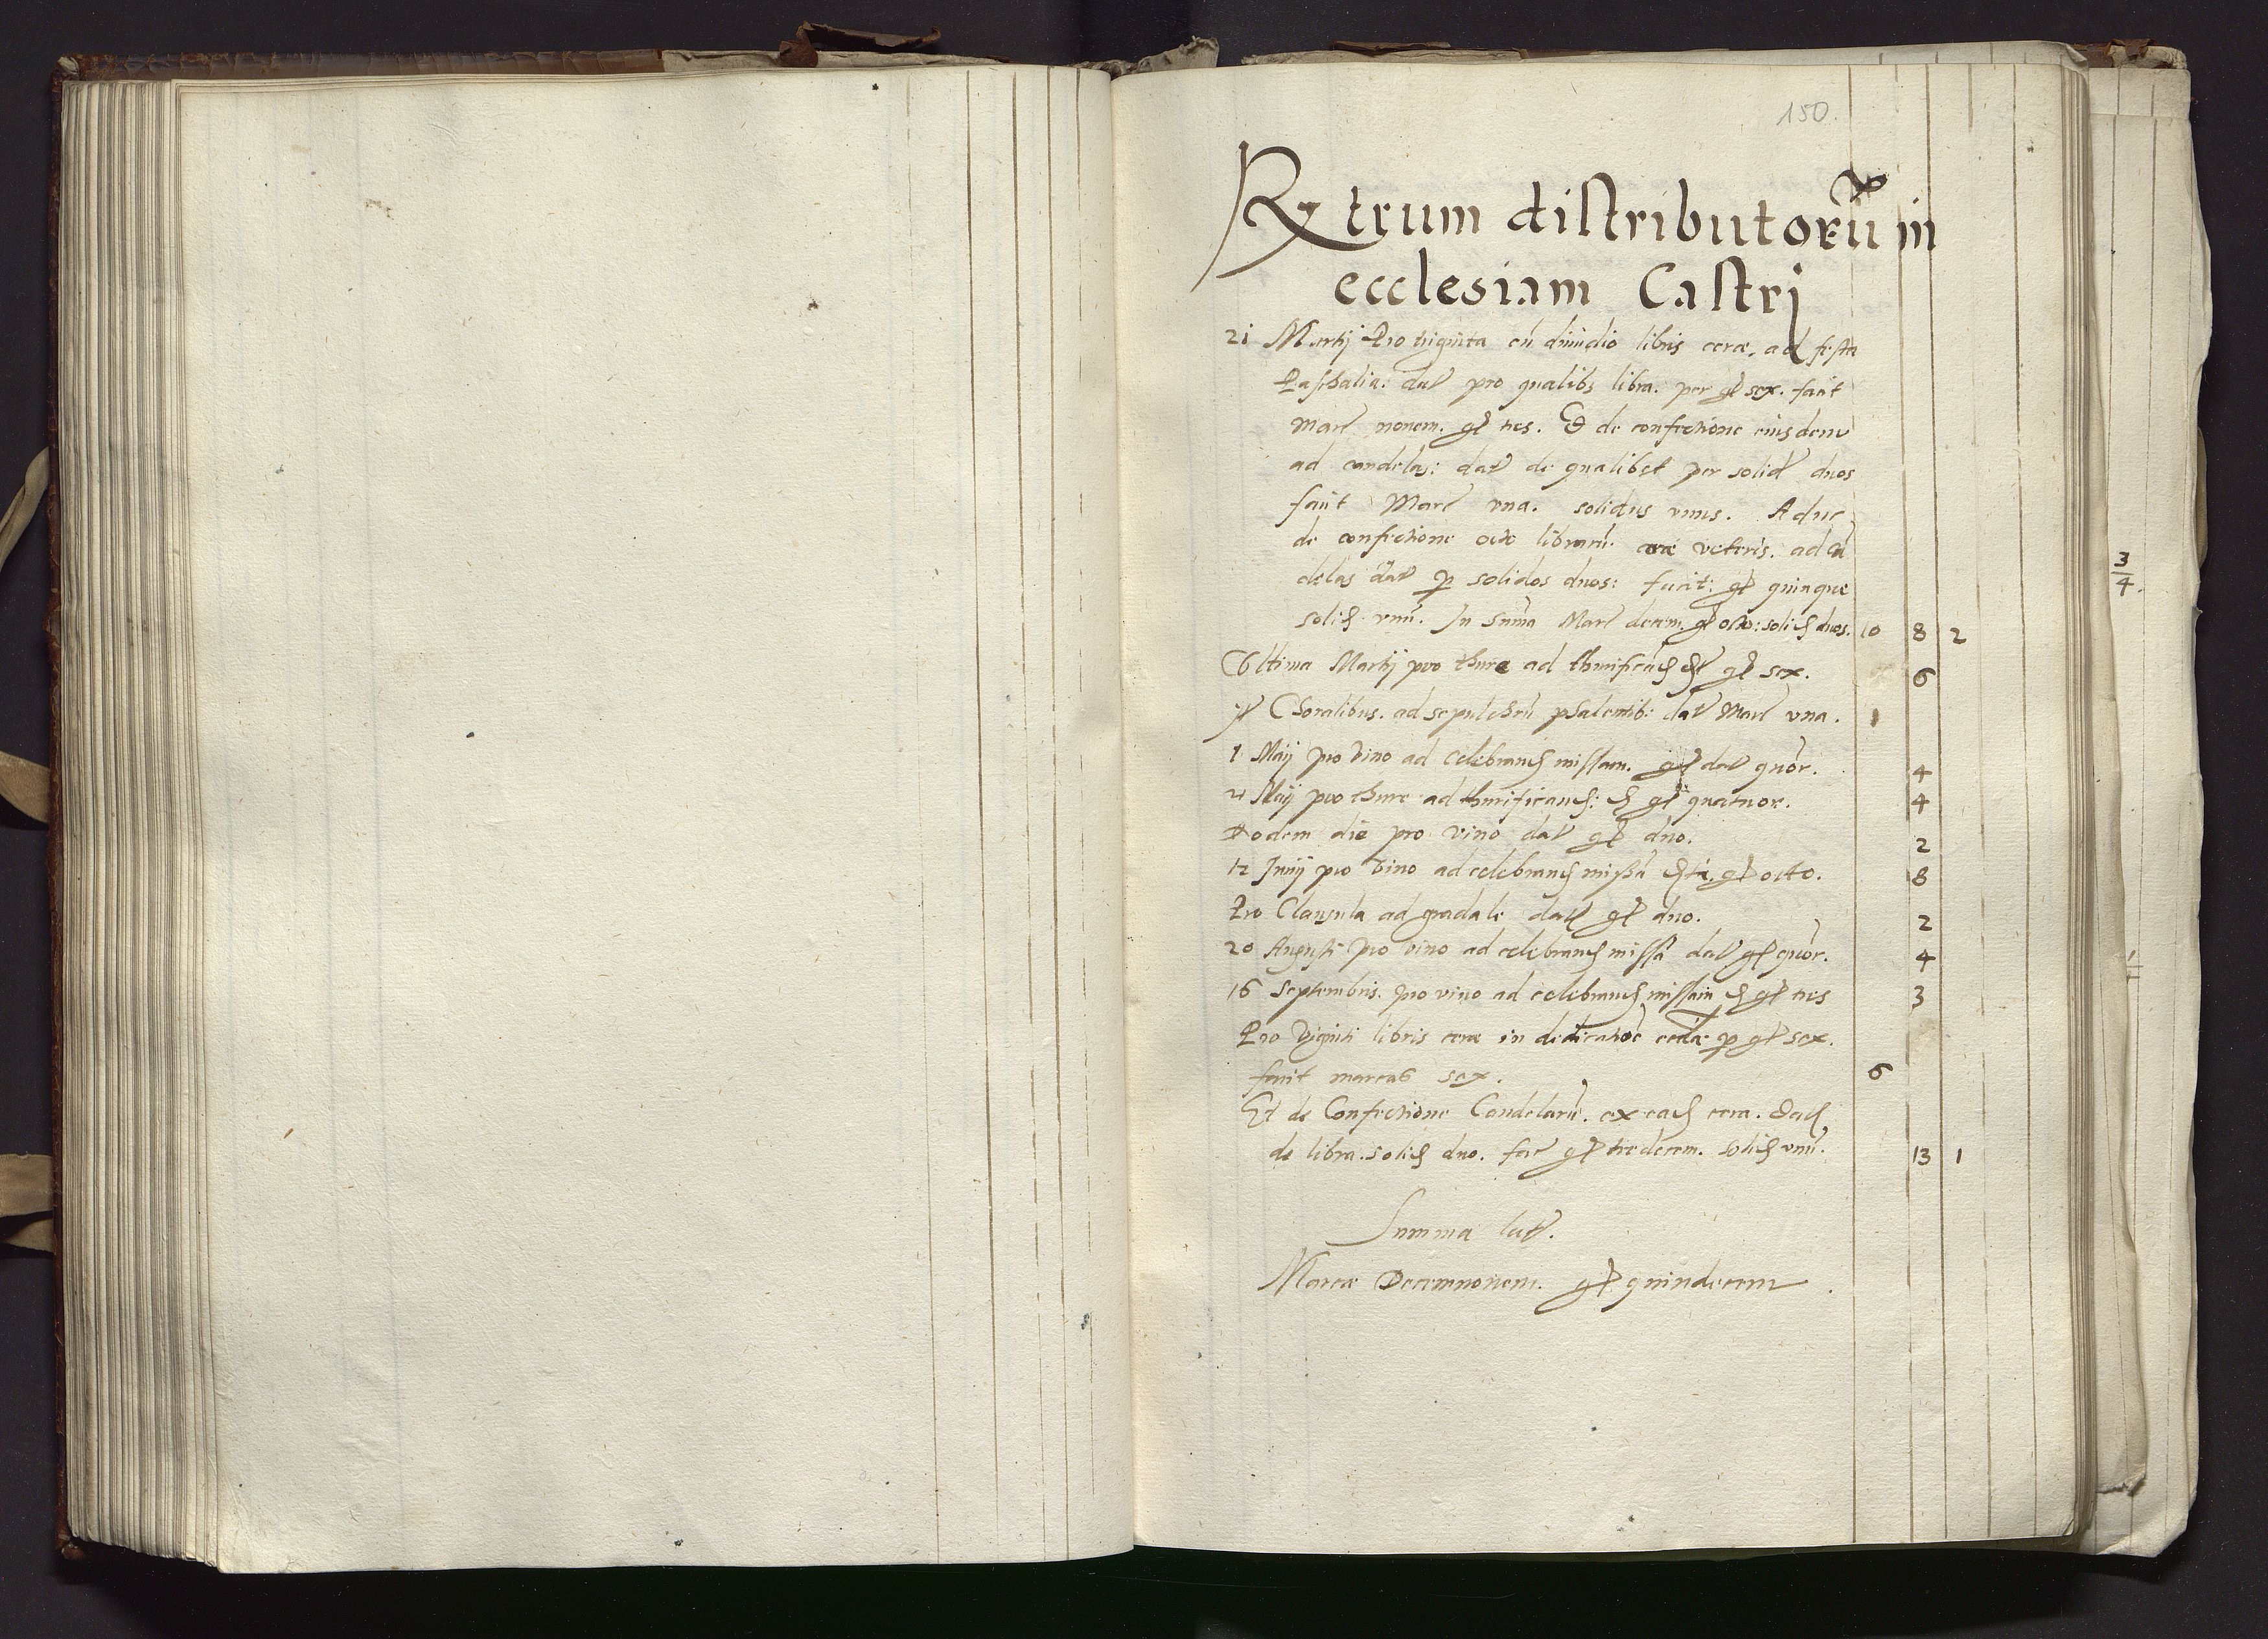 150.
Rtrum distributorū in
ecclesiam Castrj
21 Martij Pro triginta cū dimidio libris ceræ, ad festa
Paschalia: dat pro qualibz libra. per gr sex. facit
Marc nonem. gr tres. Et de confectione eiusdem
ad candelas: dat de qualibet per solid duos
faciit Marc vna. solidus vnus. Aduc
de confectione octo librarū ceræ veteris. ad cā
delas dat p solidos duos: facit: gr quinque
solid vnū. In Suma Marc decem. gr octo: solid duos. 10 8 2
Vltima Martij pro thure ad thurificād gr sex. 6
Choralibus. ad sepulchrū psalentib: dat Marc vna. 1
1 Maij pro vino ad celebrand missam. gr dat quor. 4
21 Maij pro thure ad thurificand: d gr quatuor. 4
Eodem die pro vino dat gr duo. 2
12 Junij pro vino ad celebrand missā gr octo. 8
Pro Clausula ad gradale dat gr duo. 2
20 Augusti pro vino ad celebrand missā dat gr quor. 4
16 Septembris. pro vino ad celebrand missam d gr tres 3
Pro viginti libris ceræ in dedicatioe eccliæ p gr sex.
facit marcas sex. 6
Et de Confectione Candelarū. ex ead cera. Dat
de libra. solid duo. fac gr tredecem. solid vnū. 13 1
Summa lat.
Marcæ Decemnonem. gr quindecem.
3
4